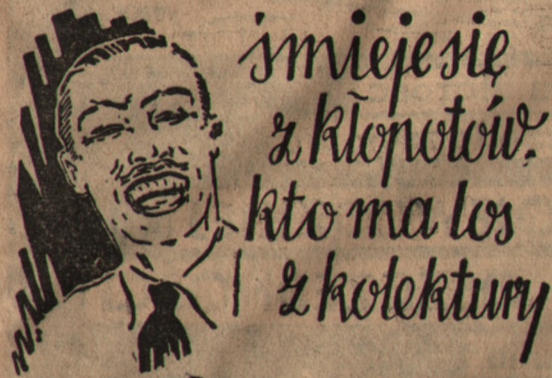 śmieje się
z kłopotów.
kto ma los
z kolektury